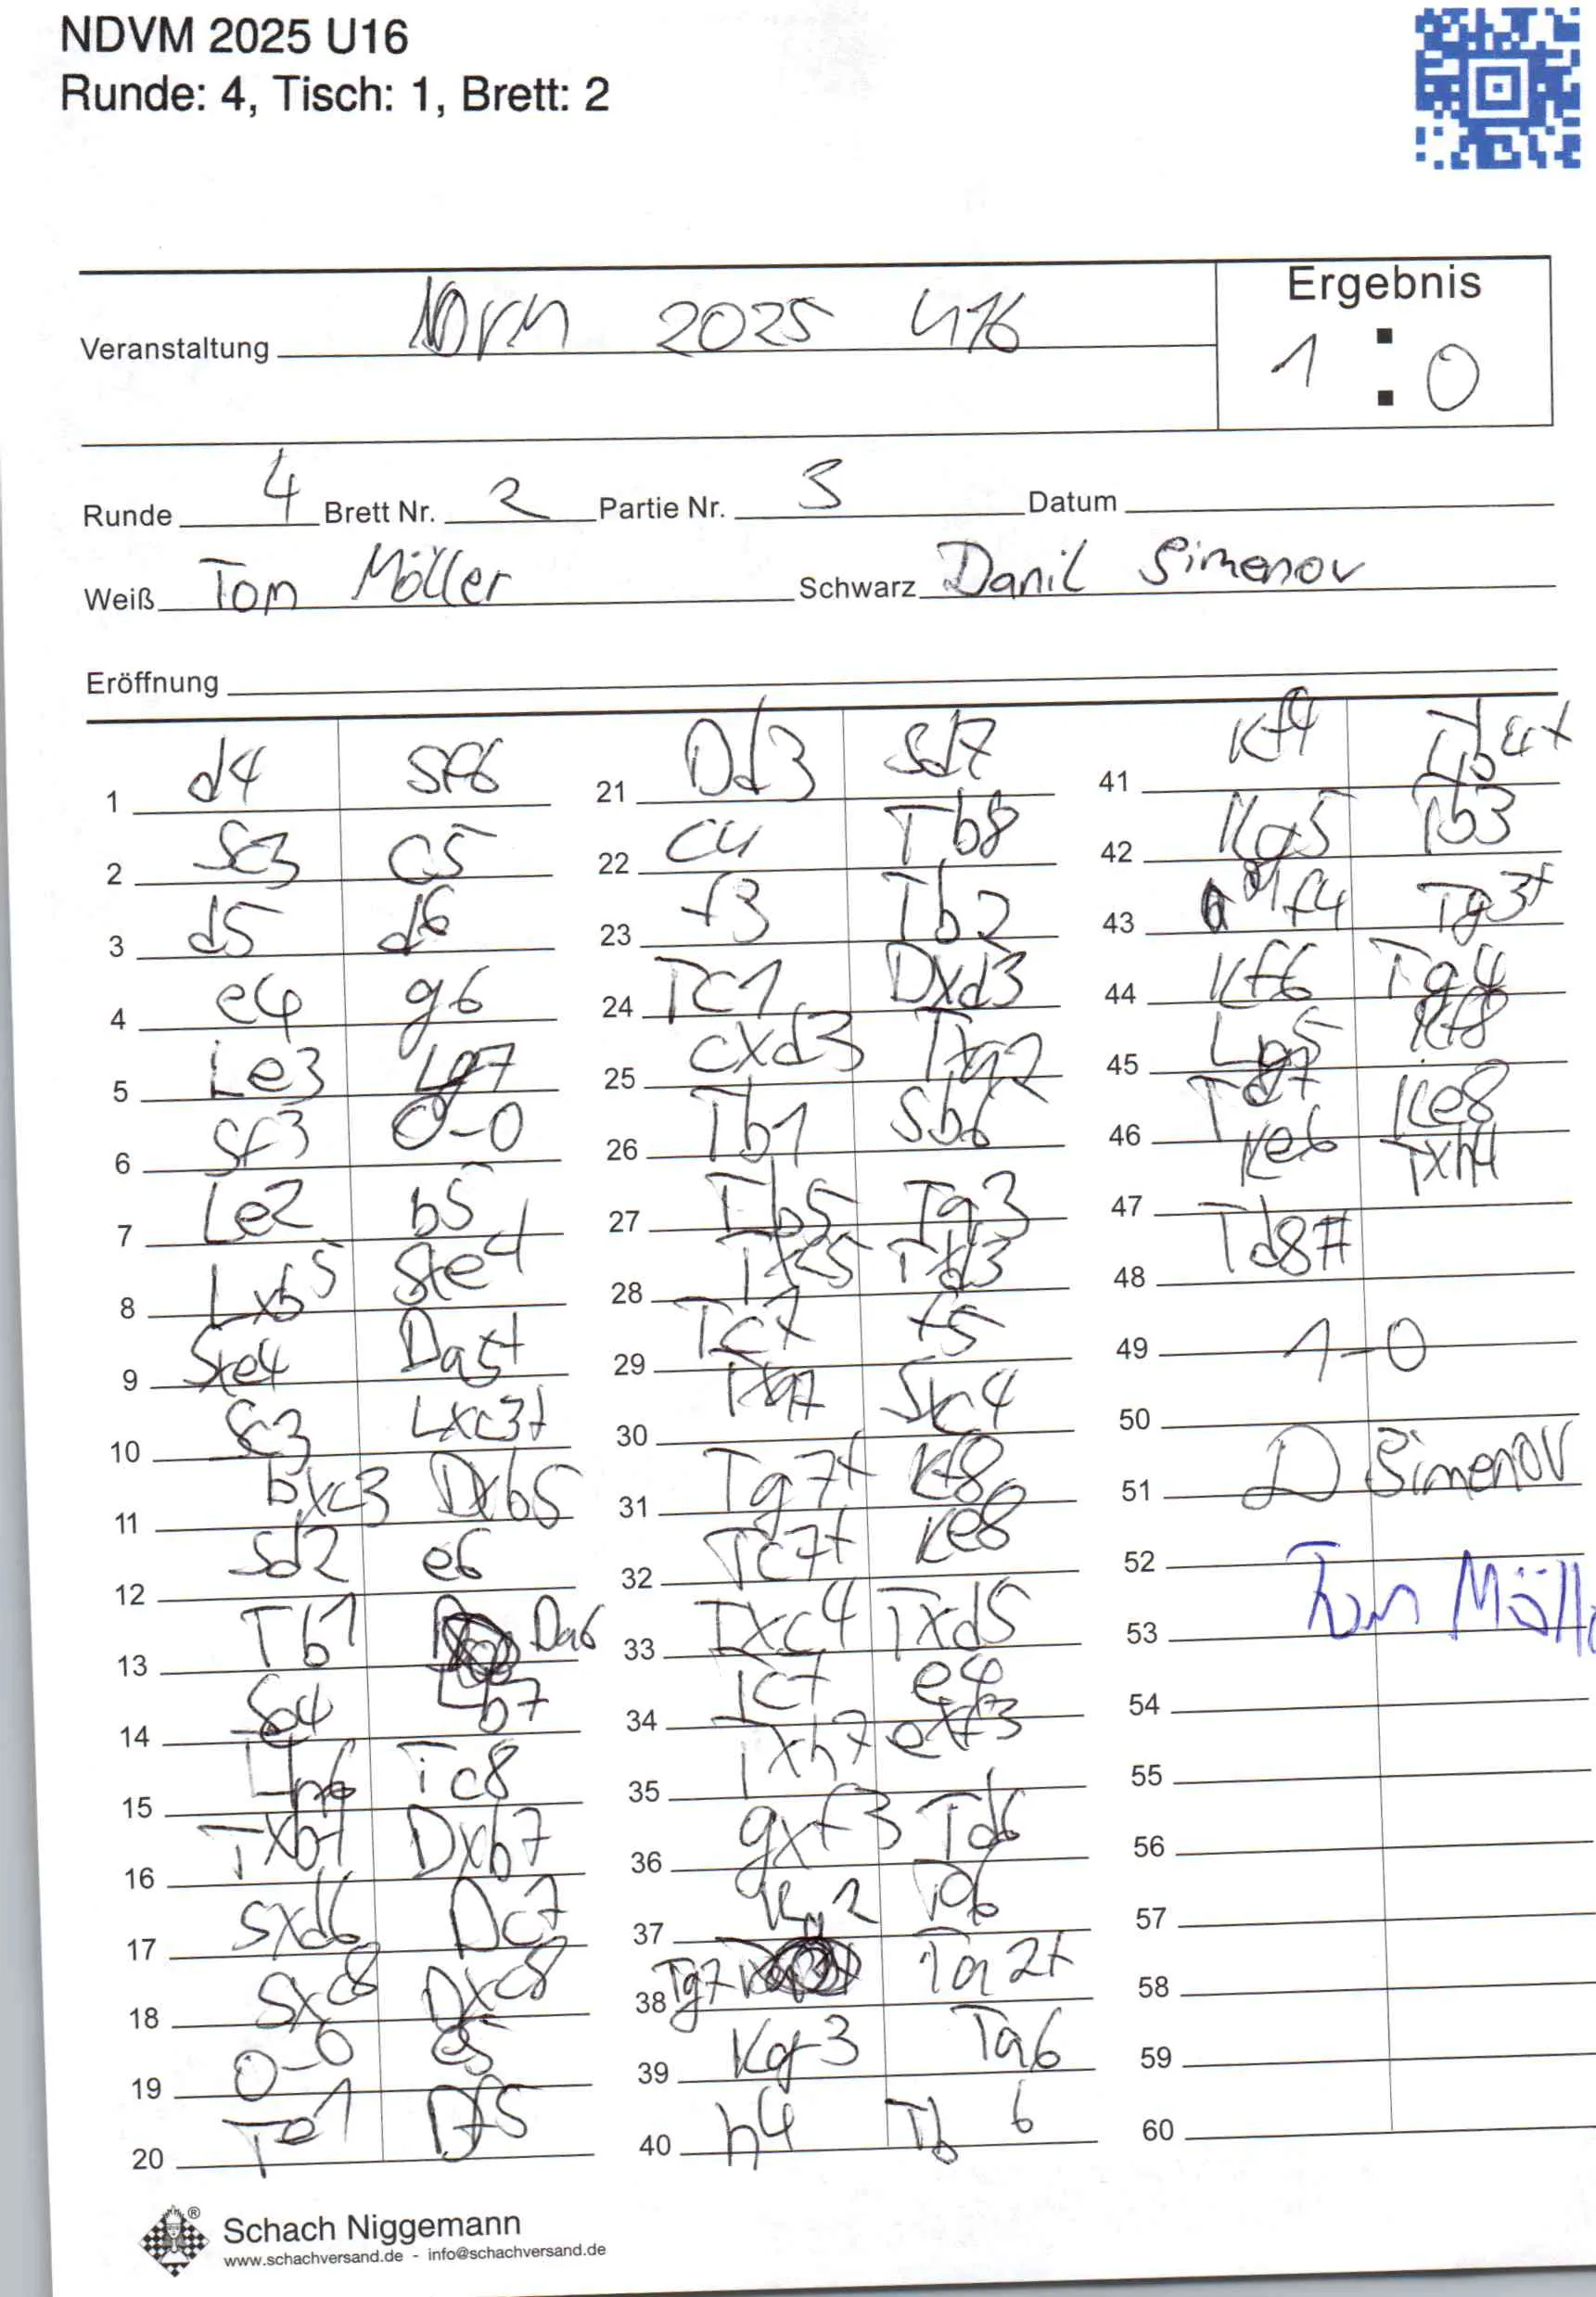 NDVM 2025 U16
Runde: 4, Tisch: 1, Brett: 2
Ergebnis
Veranstaltung NDVM 2025 U16
1 : 0
Runde 4 Brett Nr. 2 Partie Nr. 3 Datum
Weiß Tom Möller Schwarz Danil Simenov
Eröffnung
1 d4 Sf6
2 Sc3 c5
3 d5 d6
4 e4 g6
5 Le3 Lg7
6 Sf3 0-0
7 Le2 b5
8 Lxb5 Sxe4
9 Sxe4 Da5+
10 Sc3 Lxc3+
11 bxc3 Dxb5
12 Sd2 e6
13 Tb1 Da6
14 Se4 Lb7
15 Lh6 Tc8
16 Txb7 Dxb7
17 Sxd6 Dc7
18 Sxc8 Dxc8
19 0-0 e5
20 Te1 Df5
21 Dd3 Sd7
22 c4 Tb8
23 f3 Tb2
24 Tc1 Dxd3
25 cxd3 Txa2
26 Tb1 Sb6
27 Tb5 Ta3
28 Txc5 Txd3
29 Tc7 f5
30 Txa7 Sxc4
31 Tg7+ Kf8
32 Tc7+ Ke8
33 Txc4 Txd5
34 Tc7 e4
35 Txh7 exf3
36 gxf3 Td6
37 Kg2 Ta6
38 Tg7 Ta2+
39 Kg3 Ta6
40 h4 Tb6
41 Kf4 Tb4+
42 Kg5 Tb3
43 f4 Tg3+
44 Kf6 Tg4
45 Lg5 Kf8
46 Td7 Ke8
47 Ke6 Txh4
48 Td8#
49 1-0
50
51 D Simenov
52
53 Tom Mölle
54
55
56
57
58
59
60
®
Schach Niggemann
www.schachversand.de - info@schachversand.de